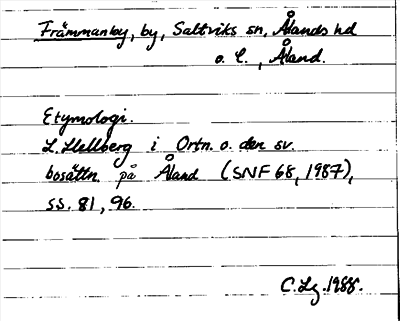 Främmanby, by, Saltviks sn, Ålands hd
o. l., Åland.
Etymologi.
L. Hellberg i Ortn. o. den sv.
bosättn. på Åland (SNF 68, 1987),
ss. 81, 96.
C. Lg. 1988.